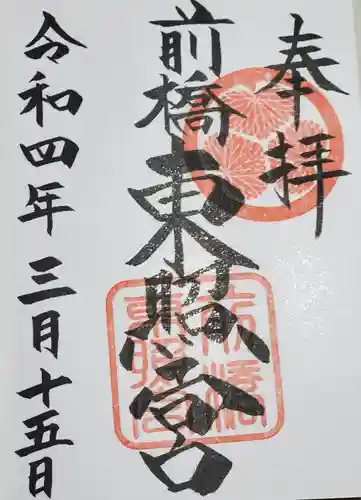 奉拝
前橋東照宮
前橋東照宮
令和四年三月十五日